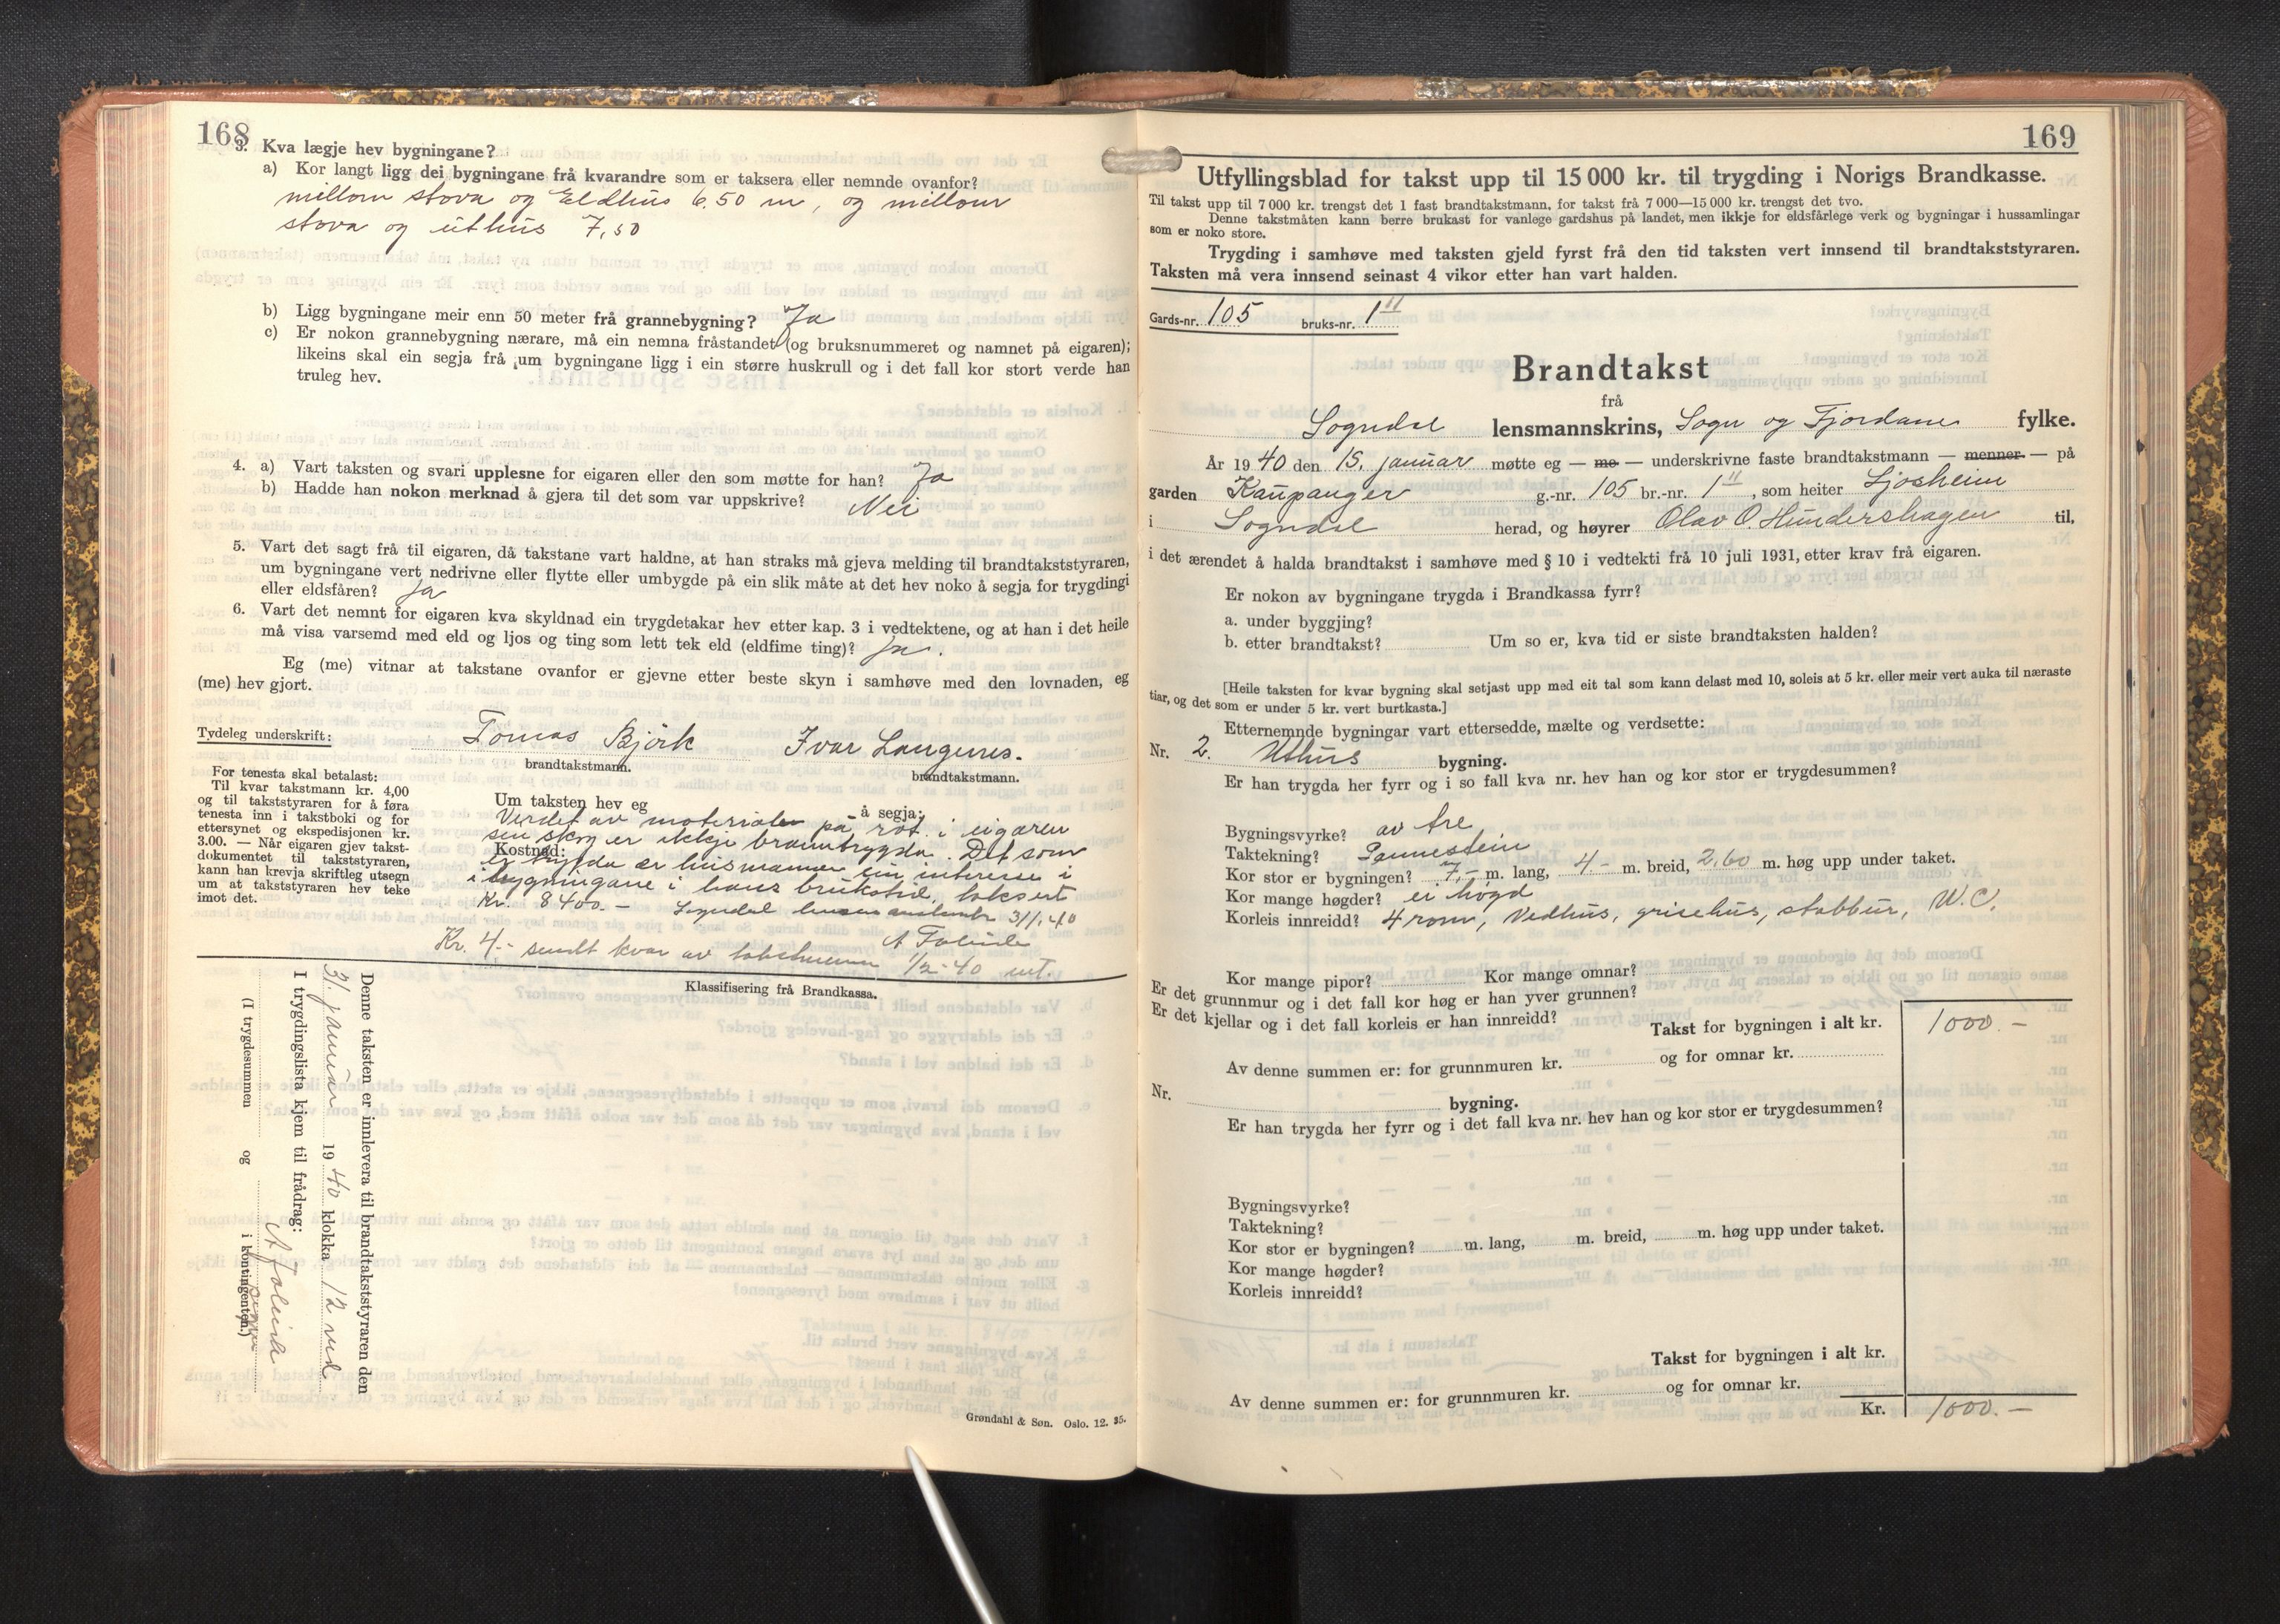 168
3. Kva lægje hev bygningane?
a) Kor langt ligg dei bygningane frå kvarandre som er taksera eller nemnde ovanfor?
millom stova og Eldhus 6,50 m, og millom
stova og uthus 7,50
b) Ligg bygningane meir enn 50 meter frå grannebygning? Ja
c) Er nokon grannebygning nærare, må ein nemna fråstandet (og bruksnummeret og namnet på eigaren);
likeins skal ein segja frå um bygningane ligg i ein større huskrull og i det fall kor stort verde han
truleg hev.
4. a) Vart taksten og svari upplesne for eigaren eller den som møtte for han? Ja
b) Hadde han nokon merknad å gjera til det som var uppskrive? Nei
5. Vart det sagt frå til eigaren, då takstane vart haldne, at han straks må gjeva melding til brandtakststyraren,
um bygningane vert nedrivne eller flytte eller umbygde på ein slik måte at det hev noko å segja for trygdingi
eller eldsfåren? Ja
6. Vart det nemnt for eigaren kva skyldnad ein trygdetakar hev etter kap. 3 i vedtektene, og at han i det heile
må visa varsemd med eld og ljos og ting som lett tek eld (eldfime ting)? Ja.
Eg (me) vitnar at takstane ovanfor er gjevne etter beste skyn i samhøve med den lovnaden, eg
(me) hev gjort.
Tydeleg underskrift: Tomas Björk Ivar Langenes.
brandtakstmann. brandtakstmann.
For tenesta skal betalast:
Til kvar takstmann kr. 4,00
og til takststyraren for å føra
tenesta inn i takstboki og for
ettersynet og ekspedisjonen kr.
3.00. — Når eigaren gjev takst-
dokumentet til takststyraren,
kann han krevja skriftleg utsegn
um at takststyraren hev teke
imot det.
Um taksten hev eg å segja:
Verdet av materialer på rot i eigaren
sin skog er ikkje branntrygda. Det som
Kostnad:
er trygda er husmannen sin interesse i
bygningane i hans brukstid, taksert
Kr. 8400.- Sogndal 31/1.40
Kr. 4.- sendt kvar av takstmenn 1/2-40
Klassifisering frå Brandkassa.
Denne taksten er innlevera til brandtakststyraren den
31. januar 1940 klokka 12 md
I trygdingslista kjem til frådrag:
(I trygdesummen og i kontingenten.)
Grøndahl & Søn. Oslo. 12. 35.
169
Utfyllingsblad for takst upp til 15 000 kr. til trygding i Norigs Brandkasse.
Til takst upp til 7 000 kr. trengst det 1 fast brandtakstmann, for takst frå 7 000—15 000 kr. trengst det tvo.
Denne takstmåten kann berre brukast for vanlege gardshus på landet, men ikkje for eldsfårlege verk og bygningar i hussamlingar
som er noko store.
Trygding i samhøve med taksten gjeld fyrst frå den tid taksten vert innsend til brandtakststyraren.
Taksten må vera innsend seinast 4 vikor etter han vart halden.
Gards-nr. 105 bruks-nr. 1 11
Brandtakst
frå
Sogndal lensmannskrins, Sogn og Fjordane fylke.
År 1940 den 15. januar møtte eg — me — underskrivne faste brandtakstmann — menner — på
garden Kaupanger g.-nr. 105 br.-nr. 1 11, som heiter Ljosheim
i Sogndal herad, og høyrer Olav O. Hundershagen til,
i det ærendet å halda brandtakst i samhøve med § 10 i vedtekti frå 10 juli 1931, etter krav frå eigaren.
Er nokon av bygningane trygda i Brandkassa fyrr?
a. under byggjing?
b. etter brandtakst? Um so er, kva tid er siste brandtaksten halden?
[Heile taksten for kvar bygning skal setjast upp med eit tal som kann delast med 10, soleis at 5 kr. eller meir vert auka til næraste
tiar, og det som er under 5 kr. vert burtkasta.]
Etternemnde bygningar vart ettersedde, mælte og verdsette:
Nr. 2. Uthus bygning.
Er han trygda her fyrr og i so fall kva nr. hev han og kor stor er trygdesummen?
Bygningsvyrke? av tre
Taktekning? Pannestein
Kor stor er bygningen? 7,- m. lang, 4- m. breid, 2,60 m. høg upp under taket.
Kor mange høgder? ei høgd
Korleis innreidd? 4 rom, Vedhus, grisehus, stabbur, W.C.
Kor mange pipor? Kor mange omnar?
Er det grunnmur og i det fall kor høg er han yver grunnen?
Er det kjellar og i det fall korleis er han innreidd?
Takst for bygningen i alt kr. 1000.-
Av denne summen er: for grunnmuren kr. og for omnar kr.
Nr. bygning.
Er han trygda her fyrr og i det fall kva nr. hev han og kor stor er trygdesummen?
Bygningsvyrke?
Taktekning?
Kor stor er bygningen? m. lang, m. breid, m. høg upp under taket.
Kor mange høgder?
Korleis innreidd?
Takst for bygningen i alt kr.
Av denne summen er: for grunnmuren kr. og for omnar kr.
Kr. 1000.-